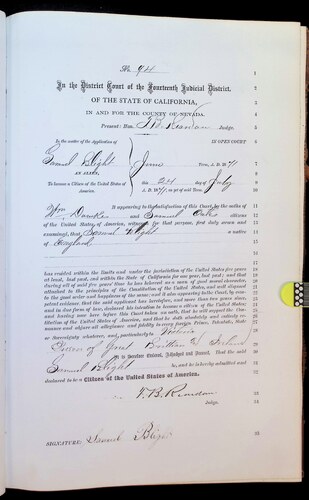 No. 94
In the District Court of the Fourteenth Judicial District.
OF THE STATE OF CALIFORNIA,
IN AND FOR THE COUNTY OF NEVADA.
Present: Hon. Judge.
In the matter of the Application of IN OPEN COURT
Samuel Blight June Term, A. D. 18 71
AN ALIEN, this 24 day of July
To become a Citizen of the United States of America. A. D. 18 71, as yet of said Term.
It appearing to the satisfaction of this Court, by the oaths of
Wm. and Samuel citizens
of the United States of America, witnesses for that purpose, first duly sworn and
examined, that Samuel Blight a native
of England
has resided within the limits and under the jurisdiction of the United States five years
at least, last past, and within the State of California for one year, last past; and that
during all of said five years' time he has behaved as a man of good moral character,
attached to the principles of the Constitution of the United States, and well disposed
to the good order and happiness of the same; and it also appearing to the Court, by com-
petent evidence, that the said applicant has heretofore, and more than two years since,
and in due form of law, declared his intention to become a citizen of the United States;
and having now here before this Court taken an oath, that he will support the Con-
stitution of the United States of America, and that he doth absolutely and entirely re-
nounce and abjure all allegiance and fidelity to every foreign Prince, Potentate, State
or Sovereignty whatever, and particularly to Victoria
Queen of Great Brittan & Ireland
It is therefore Ordered, Adjudged and Decreed, That the said
Samuel Blight be, and he is hereby admitted and
declared to be a Citizen of the United States of America.
Judge.
SIGNATURE: Samuel Blight